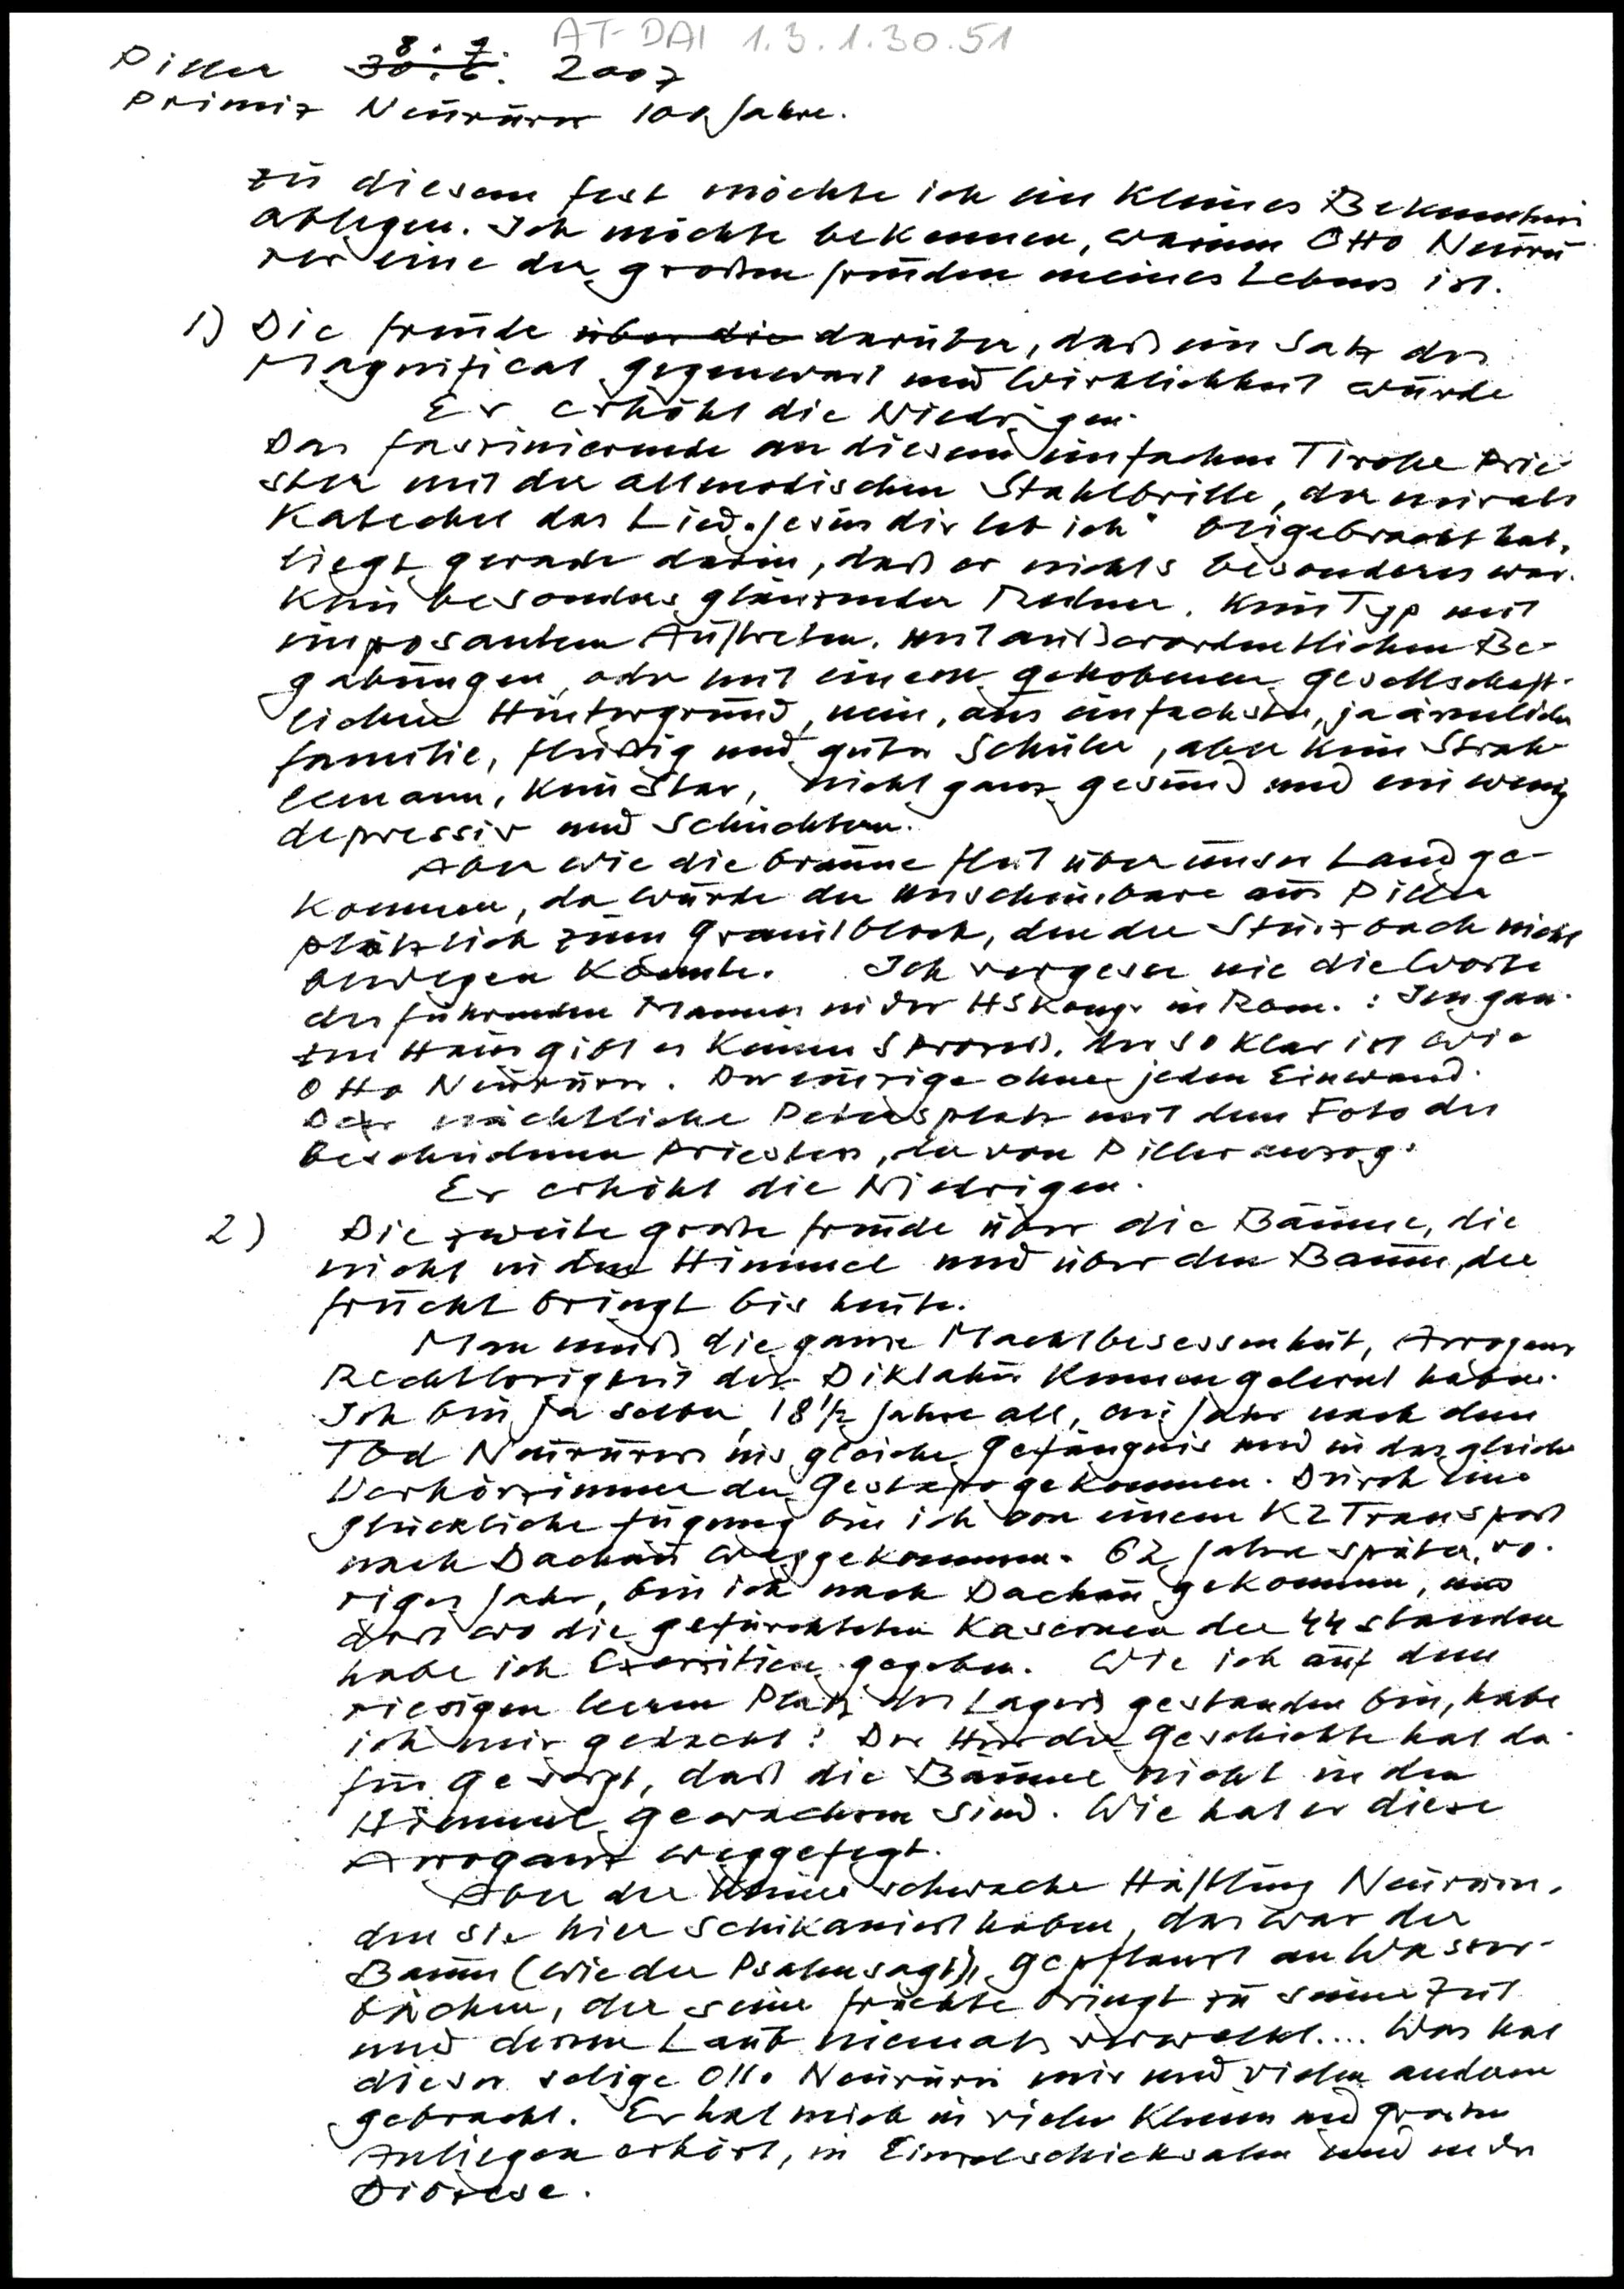 AT-DAI 1.3.1.30.51
Piller 30.6. 8.7. 2007
Primiz Neururer 100 Jahre.
Zu diesem Fest möchte ich ein kleines Bekenntnis
ablegen. Ich möchte bekennen, warum Otto Neuru
rer eine der großen Freuden meines Lebens ist.
1) Die Freude über die darüber, daß ein Satz des
Magnificat Gegenwart und Wirklichkeit wurde
Er erhöht die Niedrigen.
Das faszinierende an diesem einfachen Tiroler Prie
ster mit der altmodischen Stahlbrille, der mir als
Katechet das Lied "Jesus dir leb ich" beigebracht hat,
liegt gerade darin, daß er nichts besonderes war.
Kein besonders glänzender Redner. Kein Typ mit
imposantem Auftreten. mit außerordentlichen Be-
gabungen, oder mit einem gehobenen gesellschaft-
lichen Hintergrund, nein, aus einfachster, ja ärmlicher
Familie, fleißig und guter Schüler, aber kein Strah-
lemann, kein Star, nicht ganz gesund und ein wenig
depressiv und schüchtern.
Aber wie die braune Flut über unser Land ge-
kommen, da wurde der unscheinbare aus Piller
plötzlich zum Granitblock, den der Sturzbach nicht
bewegen konnte. Ich vergesse nie die Worte
des führenden Mannes in der HSKong. in Rom.: Im gan-
zen Haus gibt es keinen Prozeß, der so klar ist wie
Otto Neururer. Der einzige ohne jeden Einwand.
Der nächtliche Petersplatz mit dem Foto des
bescheidenen Priesters, der von Piller auszog.
Er erhöht die Niedrigen.
2) Die zweite große Freude über die Bäume, die
nicht in den Himmel und über den Baum, der
Frucht bringt bis heute.
Man muß die ganze Machtbesessenheit, Arroganz
Rechtlosigkeit der Diktatur kennengelernt haben.
Ich bin ja selber, 18 1/2 Jahre alt, ein Jahr nach dem
Tod Neururers ins gleiche Gefängnis und in das gleiche
Verhörzimmer der Gestapo gekommen. Durch eine
glückliche Fügung bin ich von einem KZ Transport
nach Dachau weggekommen. 62 Jahre später, vo-
riges Jahr, bin ich nach Dachau gekommen, und
dort wo die gefürchteten Kasernen der SS standen
habe ich Exerzitien gegeben. Wie ich auf dem
riesigen leeren Platz des Lagers gestanden bin, habe
ich mir gedacht: Der Herr der Geschichte hat da-
für gesorgt, daß die Bäume nicht in den
Himmel gewachsen sind. Wie hat er diese
Arroganz weggefegt.
Aber der kleine schwache Häftling Neururer,
den sie hier schikaniert haben, das war der
Baum (wie der Psalm sagt), gepflanzt an Wasser-
bächen, der seine Früchte bringt zu seiner Zeit
und dessen Laub niemals verwelkt.... Was hat
dieser selige Otto Neururer mir und vielen anderen
gebracht. Er hat mich in vielen kleinen und großen
Anliegen erhört, in Einzelschicksalen und in der
Diözese.